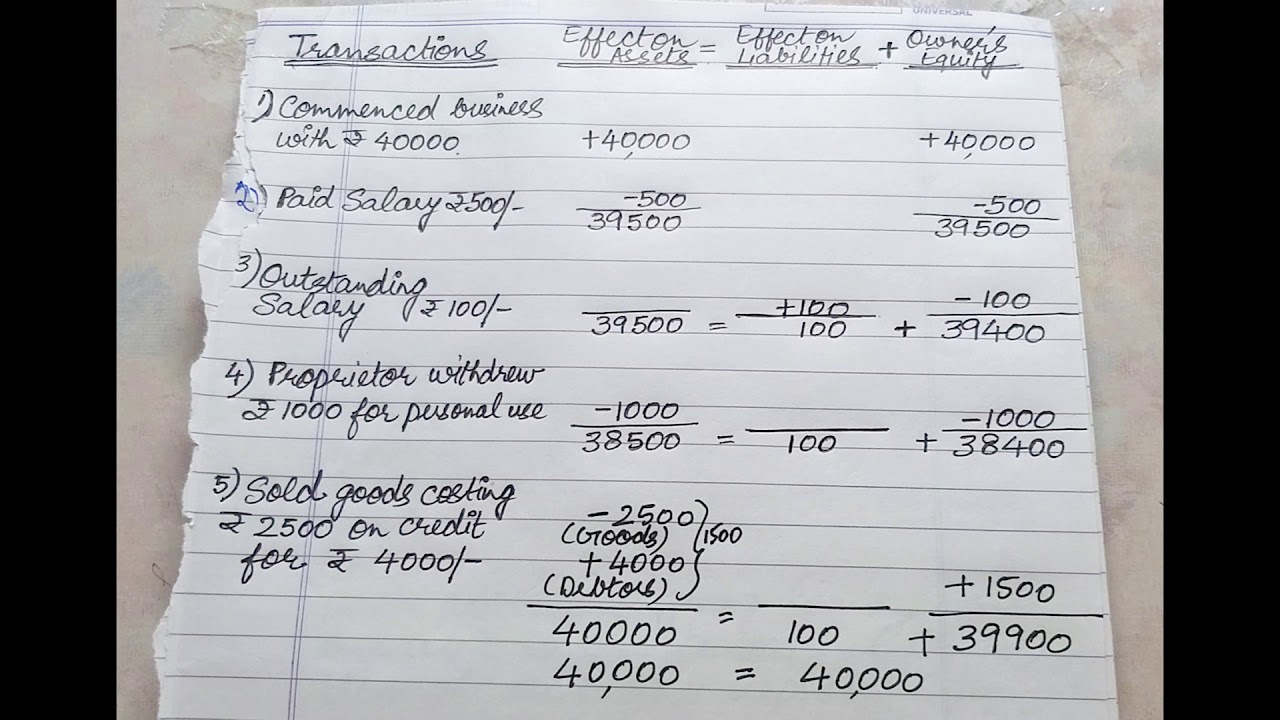 UNIVERSAL
Transactions Effect on Assets = Effect on Liabilities + Owner's Equity
1) Commenced business
with ₹ 40000. +40,000 +40,000
2) Paid Salary ₹500/- -500 -500
39500 39500
3) Outstanding
Salary ₹100/- +100 -100
39500 = 100 + 39400
4) Proprietor withdrew
₹1000 for personal use -1000 -1000
38500 = 100 + 38400
5) Sold goods costing
₹2500 on credit -2500
(Goods) 1500
for ₹ 4000/- +4000
(Debtors) +1500
40000 = 100 + 39900
40,000 = 40,000